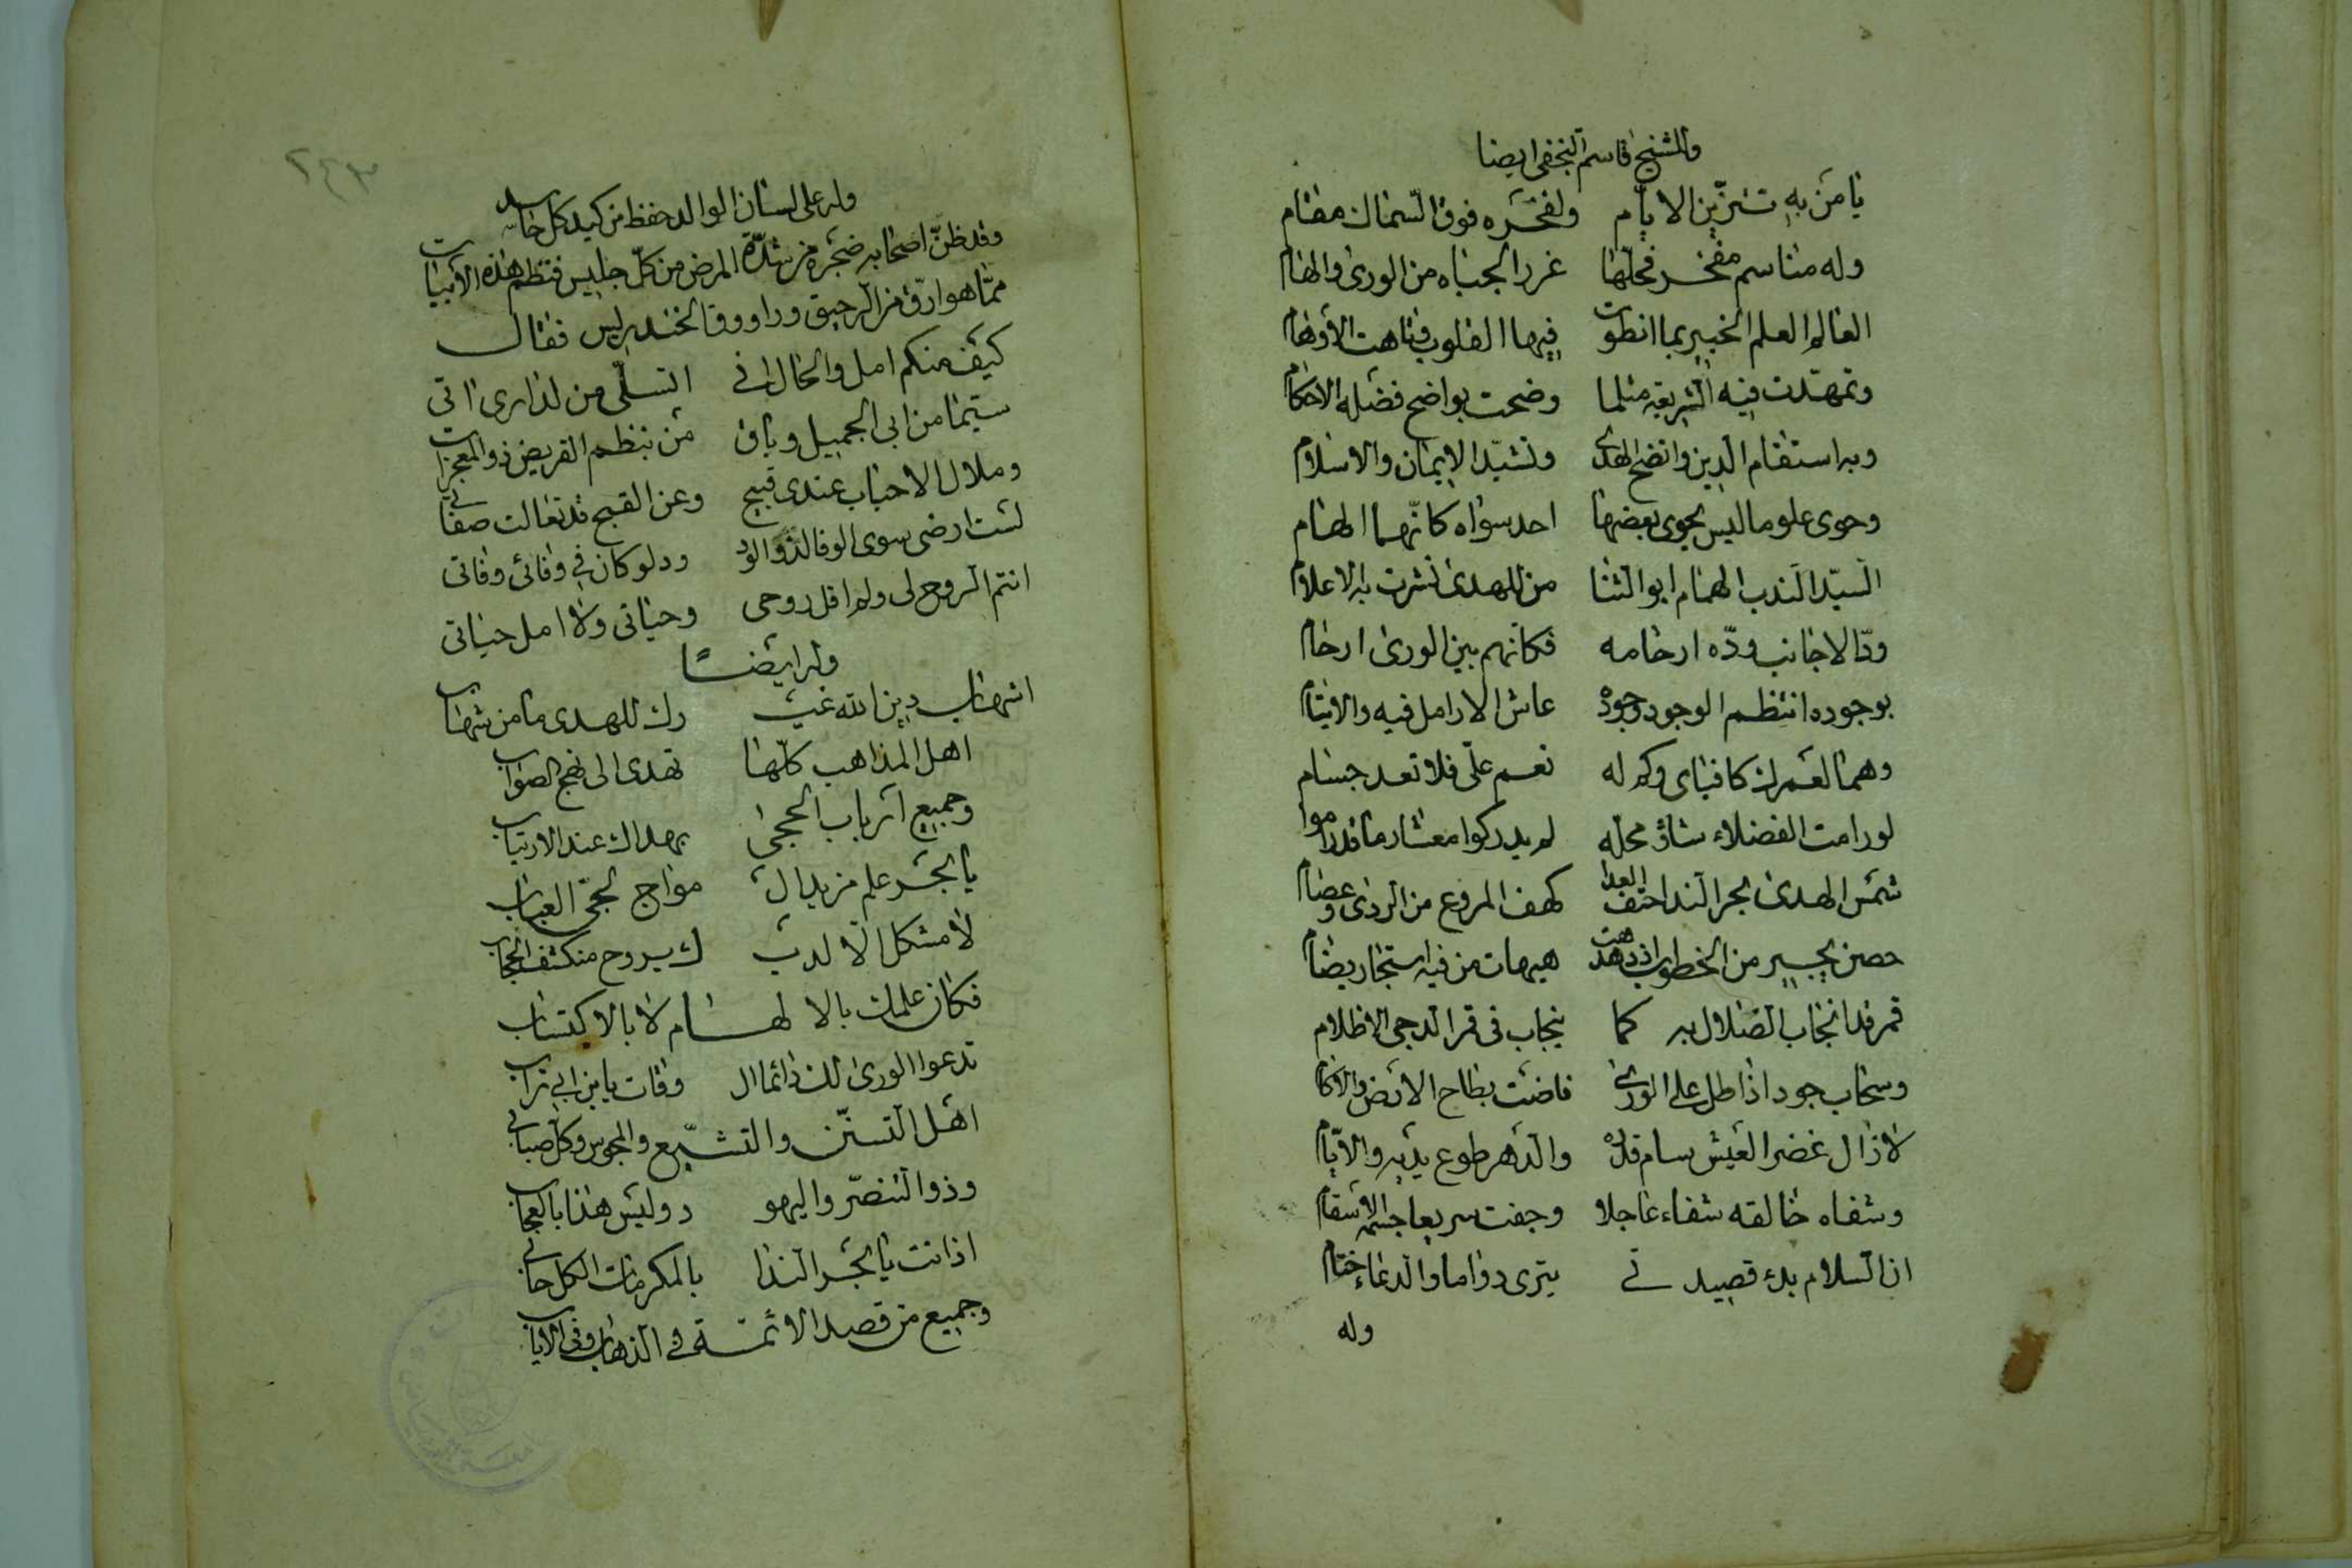 وللشيخ قاسم النجفي ايضا
يا من به تتزين الايام ولفخره فوق السماك مقام
وله مناسم مفخر فحلّها غرر الجباه من الورى والهام
العالم العلم الخبير بما انطوت فيها القلوب فتاهت الأوهام
وتمهّدت فيه الشريعة مثلما وضحت بواضح فضله الاحكام
وبه استقام الدين واتضح الهدى وتشيّد الايمان والاسلام
وحوى علوما ليس يحوى بعضها احد سواه كانّها الهام
السيّد الندب الهمام ابو الثنا من للهدى نشرت به الاعلام
ودّ الاجانب ودّه ارحامه فكانهم بين الورى ارحام
بوجوده انتظم الوجود وجوده عاش الارامل فيه والايتام
وهما لعمرك كافياى وكم له نعم علىّ فلا تعد جسام
لو رامت الفضلاء شاؤ محله لم يدركوا معشار ما قد راموا
شمس الهدى بحر الندا حتف العدا كهف المروع من الردى وعصام
حصن يجير من الخطوب اذ دهت هيهات من فيه استجار يضام
قمر قد انجاب الضلال به كما ينجاب في قمر الدجى الاظلام
وسحاب جود اذا طل على الورى فاضت بطاح الارض والاكام
لا زال غض العيش سام قدره والدهر طوع يديه والايّام
وشفاه خالقه شفاء عاجلا وجفت سريعا جسمه الاسقام
ان السلام بدء قصيدتي يترى دواما والدعاء ختام
وله
٢٤٣
وله على لسان الوالد حفظ من كيد كل حاسد
وقد ظنّ اصحابه ضجره من شدّة المرض من كلّ جليس فنظم هذه الأبيات
ممّا هو ارقّ من الرحيق وراووق الخندريس فقال
كيف منكم امل والحال اني التسلّى من لذارى اتى
سيّما من ابي الجميل وباق من بنظم القريض ذو المعجزات
وملال الاحباب عندى قبيح وعن القبح قد تعالت صفاتي
لست ارضى سوى الوفا لذوا الود ود لو كان في وفائى وفاتى
انتم الروح لى ولم اقل روحى وحياتى ولا امل حياتى
وله ايضًا
اشهاب دين الله غيـ ـرك للهدى ما من شهاب
اهل المذاهب كلّها تهدى الى نهج الصواب
وجميع ارباب الحجى بهداك عند الارتياب
يا بحر علم من يد ال مواج لجىّ العباب
لا مشكل الّا لديـ ـك يروح منكشف الحجاب
فكان علمك بالالهام لا بالاكتساب
تدعوا الورى لك دائما ال وقات يابن ابي تراب
اهل التسنّن والتشيّع والمجوس وكل صبابي
وذوا التنصّر واليهو د وليس هذا بالعجاب
اذ انت يا بحر الندا بالمكرمات الكل حابي
وجميع من قصد الائمّة في الذهاب وفى الاياب